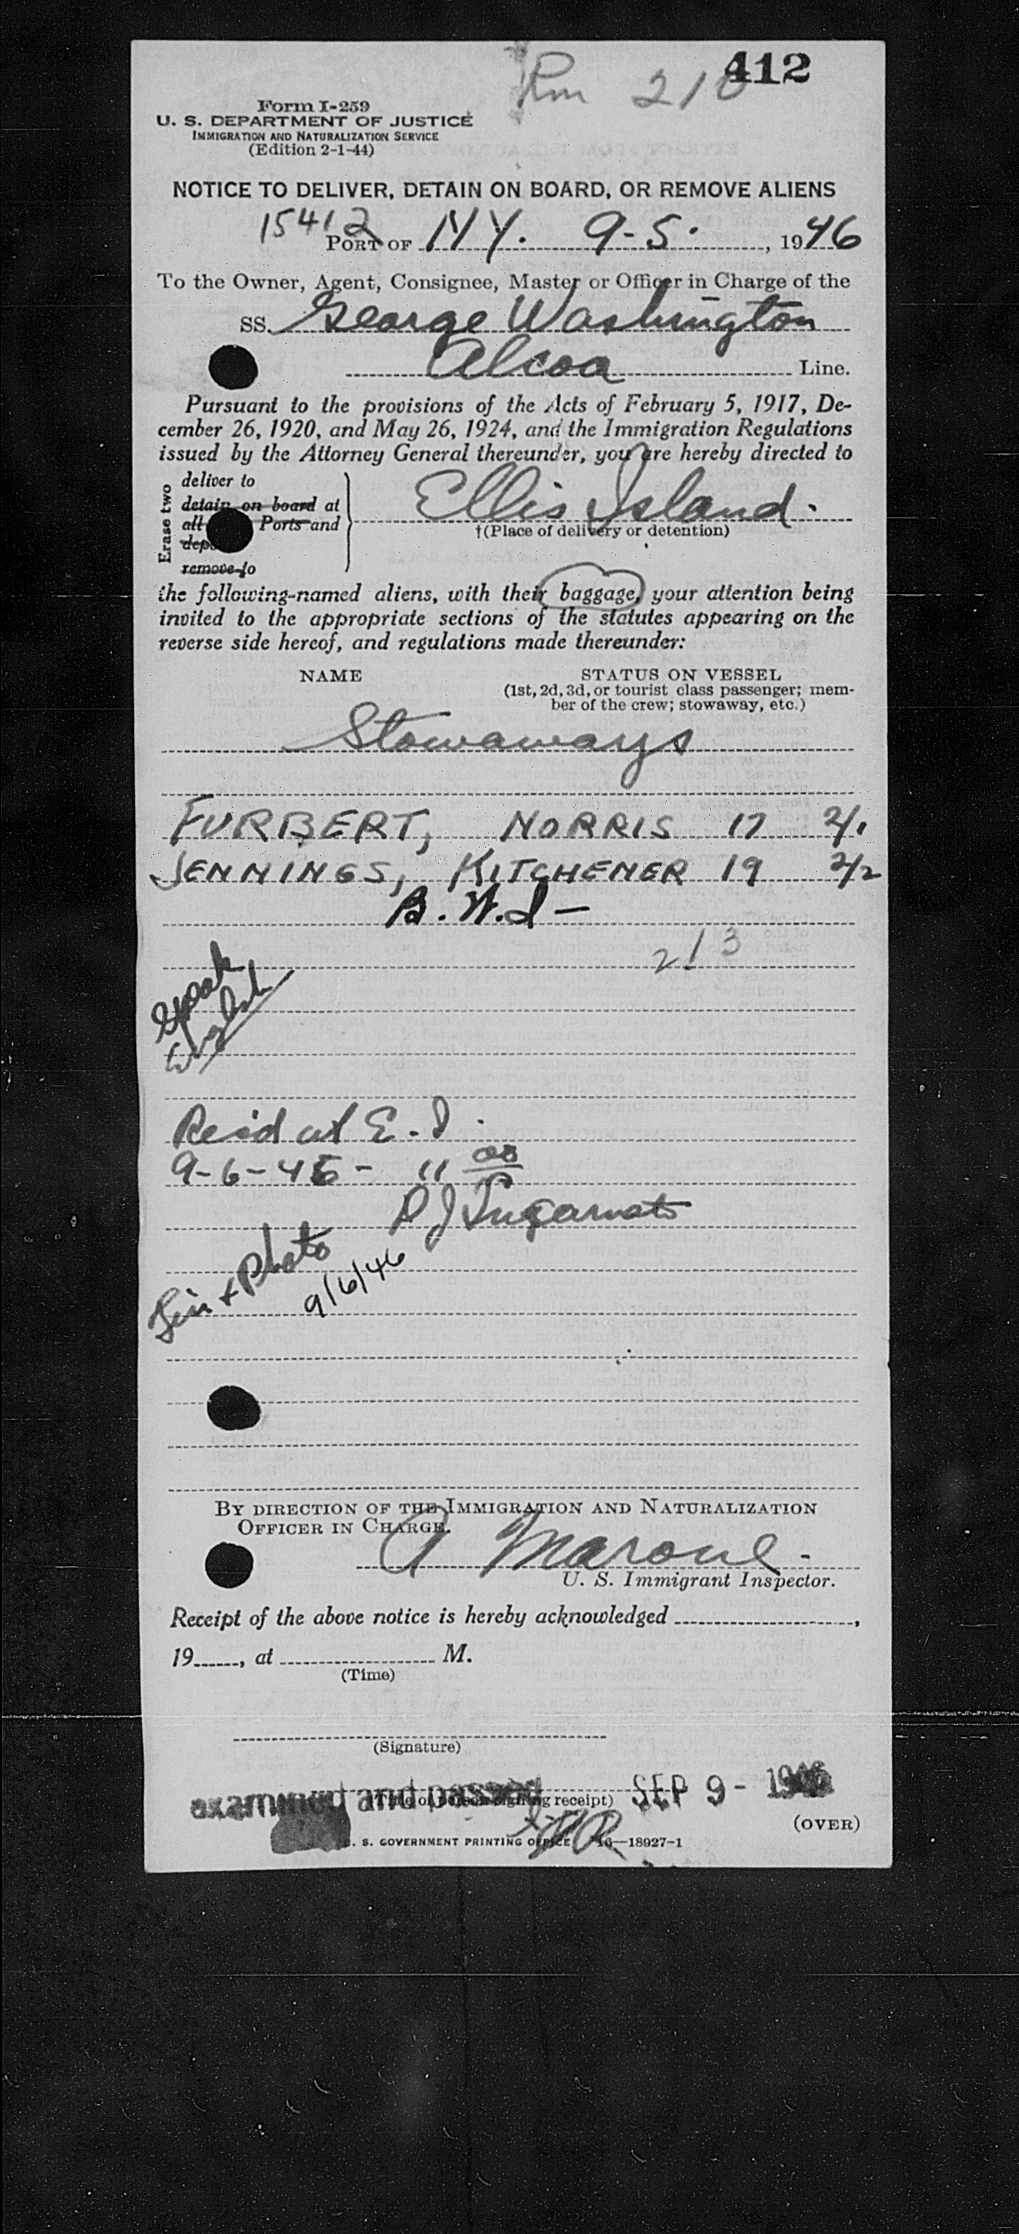 Rm 210
412
Form I-259
U. S. DEPARTMENT OF JUSTICE
IMMIGRATION AND NATURALIZATION SERVICE
(Edition 2-1-44)
NOTICE TO DELIVER, DETAIN ON BOARD, OR REMOVE ALIENS
15412
PORT OF NY. 9-5., 1946
To the Owner, Agent, Consignee, Master or Officer in Charge of the
SS. George Washington
Alcoa Line.
Pursuant to the provisions of the Acts of February 5, 1917, De-
cember 26, 1920, and May 26, 1924, and the Immigration Regulations
issued by the Attorney General thereunder, you are hereby directed to
Erase two
deliver to
detain on board at
all Ports and
remove to
Ellis Island.
†(Place of delivery or detention)
the following-named aliens, with their baggage, your attention being
invited to the appropriate sections of the statutes appearing on the
reverse side hereof, and regulations made thereunder:
NAME STATUS ON VESSEL
(1st, 2d, 3d, or tourist class passenger; mem-
ber of the crew; stowaway, etc.)
Stowaways
FURBERT, NORRIS 17 2/1
JENNINGS, KITCHENER 19 2/2
B.W.I—
213
Speak
English
Rec'd at E.I.
9-6-46 - "
Fin + Photo
9/6/46
BY DIRECTION OF THE IMMIGRATION AND NATURALIZATION
OFFICER IN CHARGE.
A Marone.
U. S. Immigrant Inspector.
Receipt of the above notice is hereby acknowledged ,
19 , at M.
(Time)
(Signature)
examined and passed SEP 9 - 1946
(Title of person signing receipt)
(OVER)
U. S. GOVERNMENT PRINTING OFFICE 16—18927-1